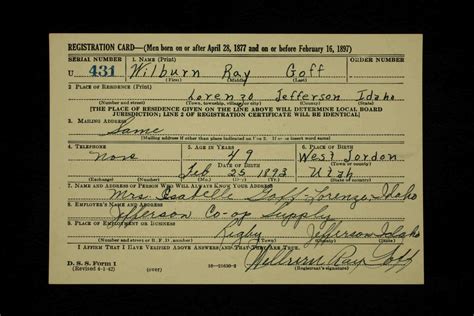 REGISTRATION CARD—(Men born on or after April 28, 1877 and on or before February 16, 1897)
SERIAL NUMBER 1. NAME (Print) ORDER NUMBER
U 431 Wilburn Ray Goff
(First) (Middle) (Last)
2. PLACE OF RESIDENCE (Print)
Lorenzo Jefferson Idaho
(Number and street) (Town, township, village, or city) (County) (State)
[THE PLACE OF RESIDENCE GIVEN ON THE LINE ABOVE WILL DETERMINE LOCAL BOARD
JURISDICTION; LINE 2 OF REGISTRATION CERTIFICATE WILL BE IDENTICAL]
3. MAILING ADDRESS
Same
(Mailing address if other than place indicated on line 2. If same insert word same)
4. TELEPHONE 5. AGE IN YEARS 6. PLACE OF BIRTH
None 49 West Jordon
DATE OF BIRTH
Feb 25 1893 Utah
7. NAME AND ADDRESS OF PERSON WHO WILL ALWAYS KNOW YOUR ADDRESS
Mrs. Isabelle Goff Lorenzo, Idaho
8. EMPLOYER'S NAME AND ADDRESS
Jefferson Co-op Supply
9. PLACE OF EMPLOYMENT OR BUSINESS
Rigby Jefferson Idaho
(Number and street or R. F. D. number) (Town) (County) (State)
I AFFIRM THAT I HAVE VERIFIED ABOVE ANSWERS AND THAT THEY ARE TRUE.
D. S. S. Form 1
(Revised 4-1-42) (over) Wilburn Ray Goff
(Registrant's signature)